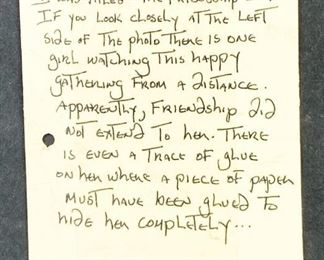 If you look closely at the left
side of the photo there is one
girl watching this happy
gathering from a distance.
Apparently, Friendship did
not extend to her. There
is even a trace of glue
on her where a piece of paper
must have been glued to
hide her completely...